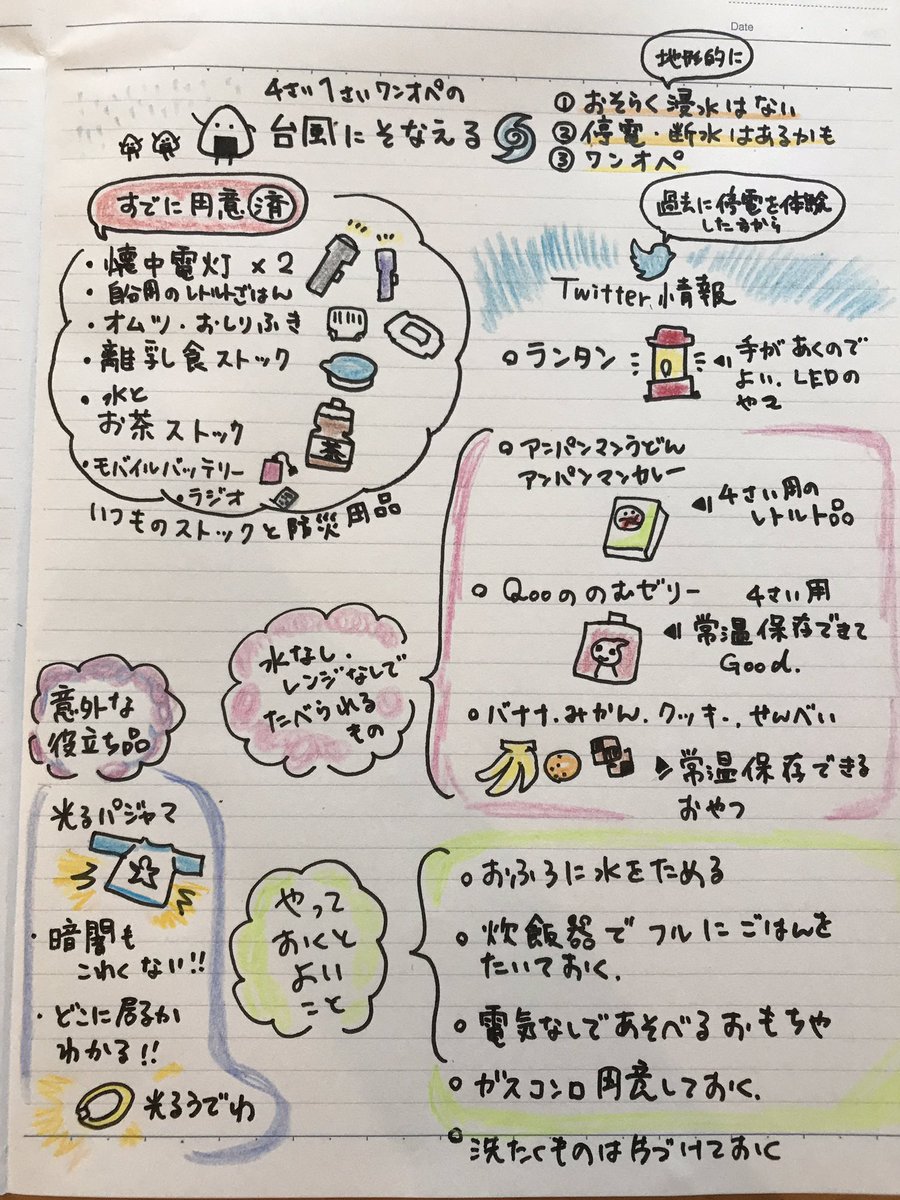 Date
4さい1さいワンオペの
台風にそなえる
地形的に
① おそらく浸水はない
② 停電・断水はあるかも
③ ワンオペ
すでに用意済
・懐中電灯 ×2
・自分用のレトルトごはん
・オムツ・おしりふき
・離乳食ストック
・水と
お茶ストック
茶
・モバイルバッテリー
・ラジオ
いつものストックと防災用品
過去に停電を体験
した方から
Twitter情報
○ ランタン
手があくので
よい. LEDの
やつ
○ アンパンマンうどん
アンパンマンカレー
4さい用の
レトルト品
○ Qooののむゼリー 4さい用
常温保存できて
Good.
○ バナナ.みかん.クッキー.せんべい
常温保存できる
おやつ
水なし・
レンジなしで
たべられる
もの
意外な
役立ち品
光るパジャマ
・暗闇も
こわくない!!
・どこに居るか
わかる!!
光るうでわ
やって
おくと
よい
こと
○ おふろに水をためる
○ 炊飯器でフルにごはんを
たいておく.
○ 電気なしであそべるおもちゃ
○ ガスコンロ用意しておく.
○ 洗たくものは片づけておく